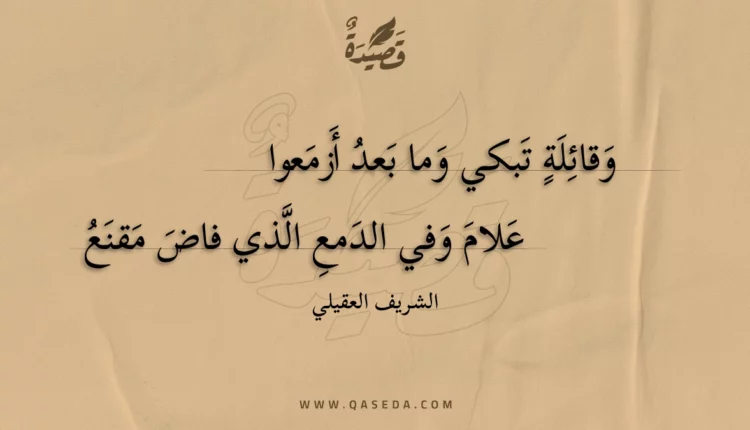 قَصِيْدَةٌ
وَقائِلَةٍ تَبكي وَما بَعدُ أَزمَعوا
عَلامَ وَفي الدَمعِ الَّذي فاضَ مَقنَعُ
الشريف العقيلي
WWW.QASEDA.COM